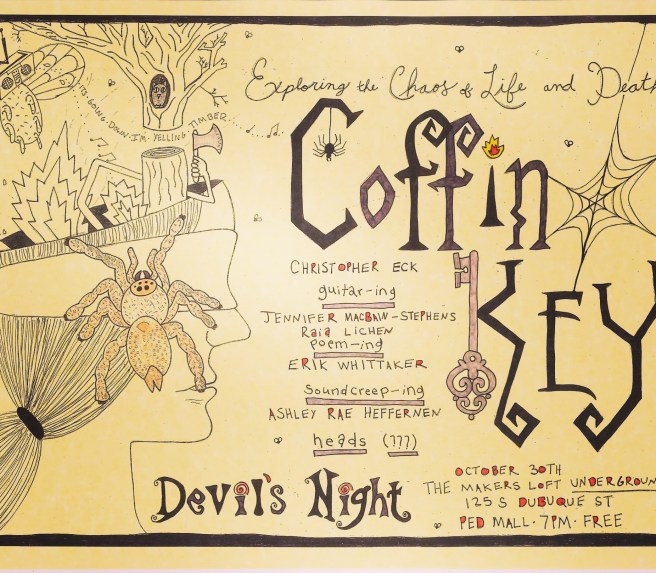 Exploring the Chaos of Life and Death
IT'S·GOING·DOWN·I'M·YELLING·TIMBER
Coffin
KEY
CHRISTOPHER ECK
guitar-ing
JENNIFER MACBAIN-STEPHENS
RAIA LICHEN
poem-ing
ERIK WHITTAKER
soundcreep-ing
ASHLEY RAE HEFFERNEN
heads (???)
Devil's Night
OCTOBER 30TH
THE MAKERS LOFT UNDERGROUN
125 S DUBUQUE ST
PED MALL·7PM·FREE